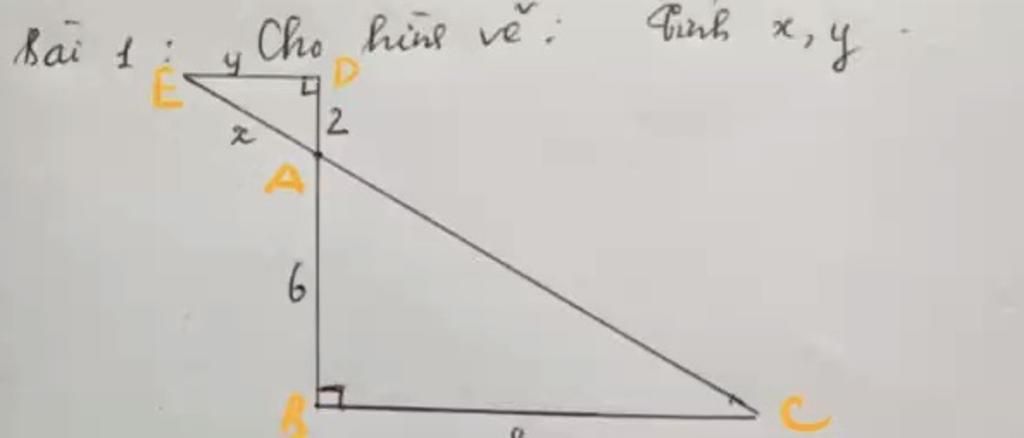 Bài 1: Cho hình vẽ: Tính x, y.
E y D
x 2
A
6
B C